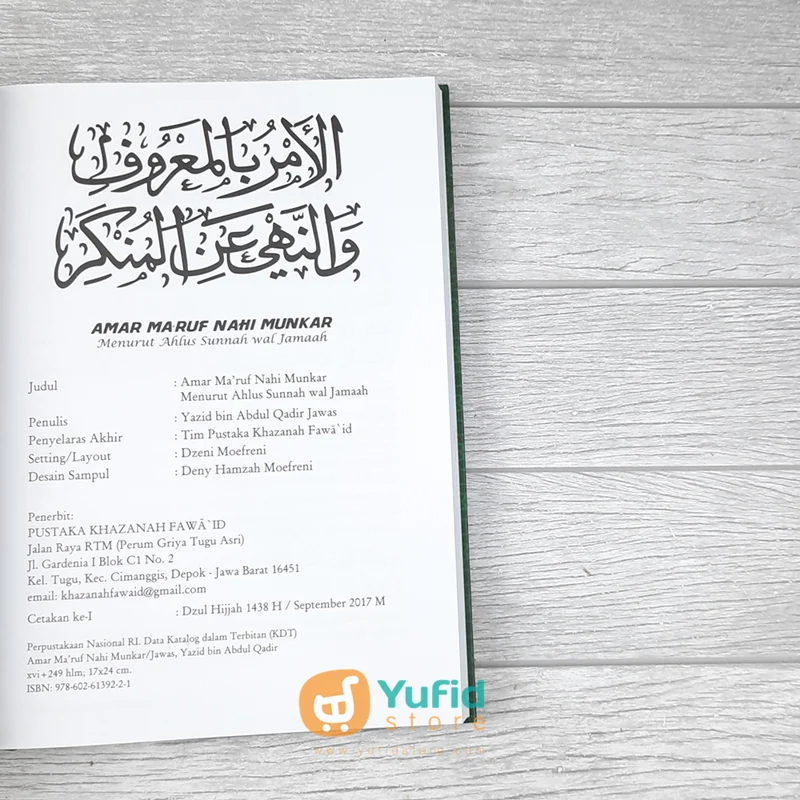 الأَمْرُ بِالْمَعْرُوفِ
وَالنَّهْيُ عَنِ الْمُنْكَرِ
AMAR MA'RUF NAHI MUNKAR
Menurut Ahlus Sunnah wal Jamaah
Judul : Amar Ma'ruf Nahi Munkar
Menurut Ahlus Sunnah wal Jamaah
Penulis : Yazid bin Abdul Qadir Jawas
Penyelaras Akhir : Tim Pustaka Khazanah Fawā`id
Setting/Layout : Dzeni Moefreni
Desain Sampul : Deny Hamzah Moefreni
Penerbit:
PUSTAKA KHAZANAH FAWĀ`ID
Jalan Raya RTM (Perum Griya Tugu Asri)
Jl. Gardenia I Blok C1 No. 2
Kel. Tugu, Kec. Cimanggis, Depok - Jawa Barat 16451
email: khazanahfawaid@gmail.com
Cetakan ke-I : Dzul Hijjah 1438 H / September 2017 M
Perpustakaan Nasional RI. Data Katalog dalam Terbitan (KDT)
Amar Ma'ruf Nahi Munkar/Jawas, Yazid bin Abdul Qadir
xvi + 249 hlm; 17x24 cm.
ISBN: 978-602-61392-2-1
Yufid
store
www.yufidstore.com